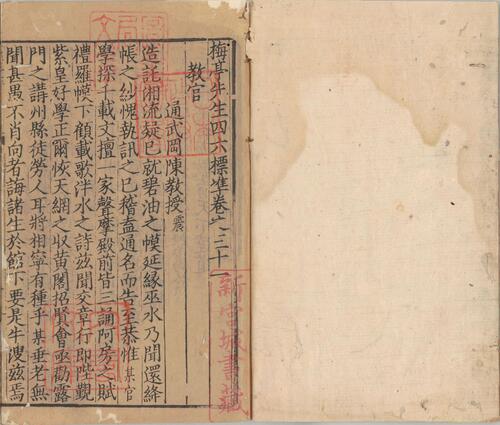 梅亭先生四六標準卷之三十一
教官
通武岡陳教授震
造託湘流疑已就碧油之幙延緣巫水乃聞還絳
帳之紗愧執訊之已稽盍通名而告至恭惟某官
學探千載文擅一家聲摩殿前皆三誦阿房之賦
禮羅幙下顧載歌泮水之詩玆聞交章行即陛覲
紫皇好學正爾恢天網之收黄閣招賢會亟勸露
門之講州縣徒勞人耳將相寧有種乎某垂老無
聞甚愚不肖向者誨諸生於館下要是牛溲玆焉
新宮城書藏